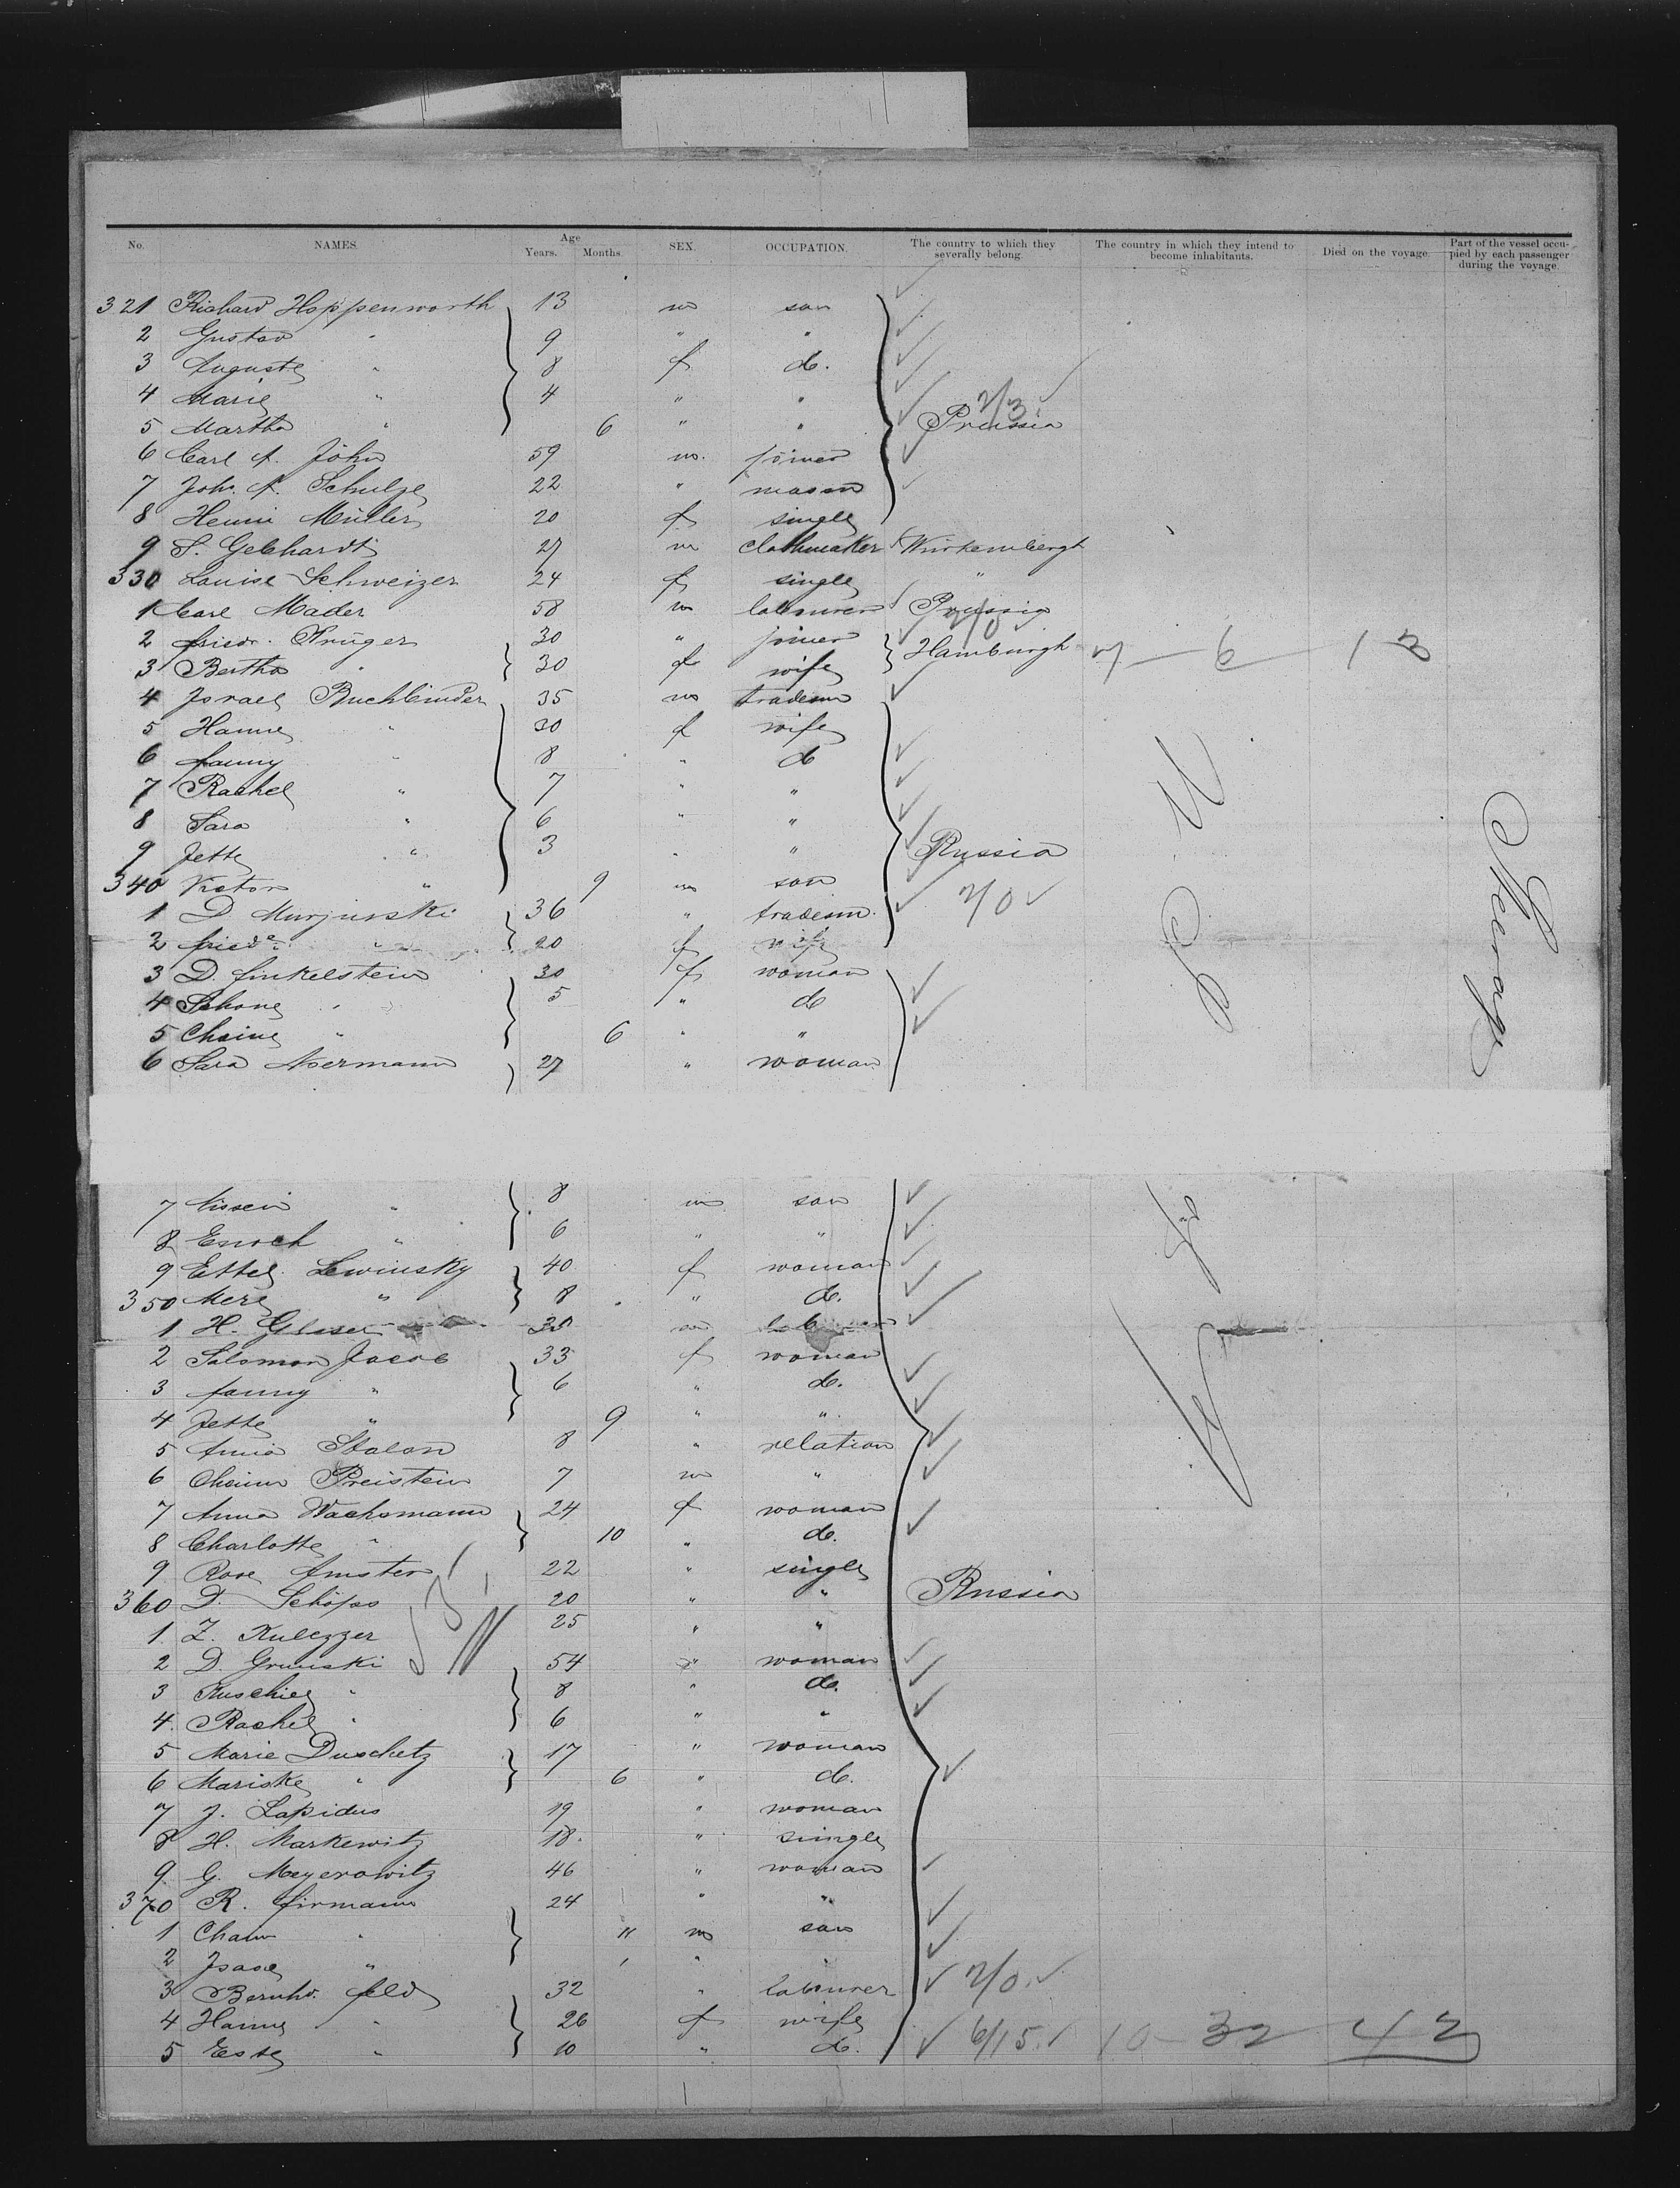 No. NAMES. Age Years. Months. SEX. OCCUPATION. The country to which they severally belong. The country in which they intend to become inhabitants. Died on the voyage. Part of the vessel occupied by each passenger during the voyage.
321 Richard Hoppenworth 13 m son
2 Gustav " 9 " "
3 Auguste " 8 f d.
4 Marie " 4 " "
5 Martha " 6 " " Prussia
6 Carl A. John 59 m. joiner
7 Joh. A. Schulze 22 " mason
8 Henni Müller 20 f single
9 S. Gebhardt 27 m clothmaker Würtembergh
330 Louise Schweizer 24 f single "
1 Carl Mader 58 m labourer Prussia
2 Friedr. Krüger 30 " joiner Hamburgh 7 - 6 - 13
3 Bertha " 30 f wife
4 Israel Buchbinder 35 m tradesm
5 Hanne " 30 f wife
6 Fanny " 8 " d
7 Rachel " 7 " "
8 Sara " 6 " "
9 Jette " 3 " " Russia
340 Victor " 9 m son
1 D. Murjurski 36 " tradesm. 2/0
2 Fried " 20 f wife
3 D. Finkelstein 30 f woman
4 Schone " 5 " d
5 Chaine " 6 " "
6 Sara Akermann 27 " woman
U. S. Steerage
7 Nissein " 8 m son
8 Enoch " 6 " "
9 Ettel Lewinsky 40 f woman
350 Mere " 8 " d.
1 H. Glaser 35 m
2 Salomon Jacob 33 f woman
3 Fanny " 6 " d.
4 Jette " 9 " "
5 Anna Stalon 8 " relation
6 Cheim Preistein 7 m "
7 Anna Wachsmann 24 f woman
8 Charlotte " 10 " d.
9 Rose Amster 22 " single
360 D. Schöps 20 " " Russia
1 Z. Kulezzer 25 " "
2 D. Grunski 54 " woman
3 Ruschie " 8 " d.
4 Rachel " 6 " "
5 Marie Duschetz 17 " woman
6 Mariske " 6 " d.
7 J. Lapidus 19 " woman
8 H. Markewitz 18 " single
9 G. Meyerowitz 46 " woman
370 R. Firmann 24 " "
1 Chaim " 11 m son
2 Isaac " " "
3 Bernhd. Feld 32 " labourer 2/0
4 Hanne " 26 f wife
5 Ester " 10 " d. 6/15 10 - 32 - 42